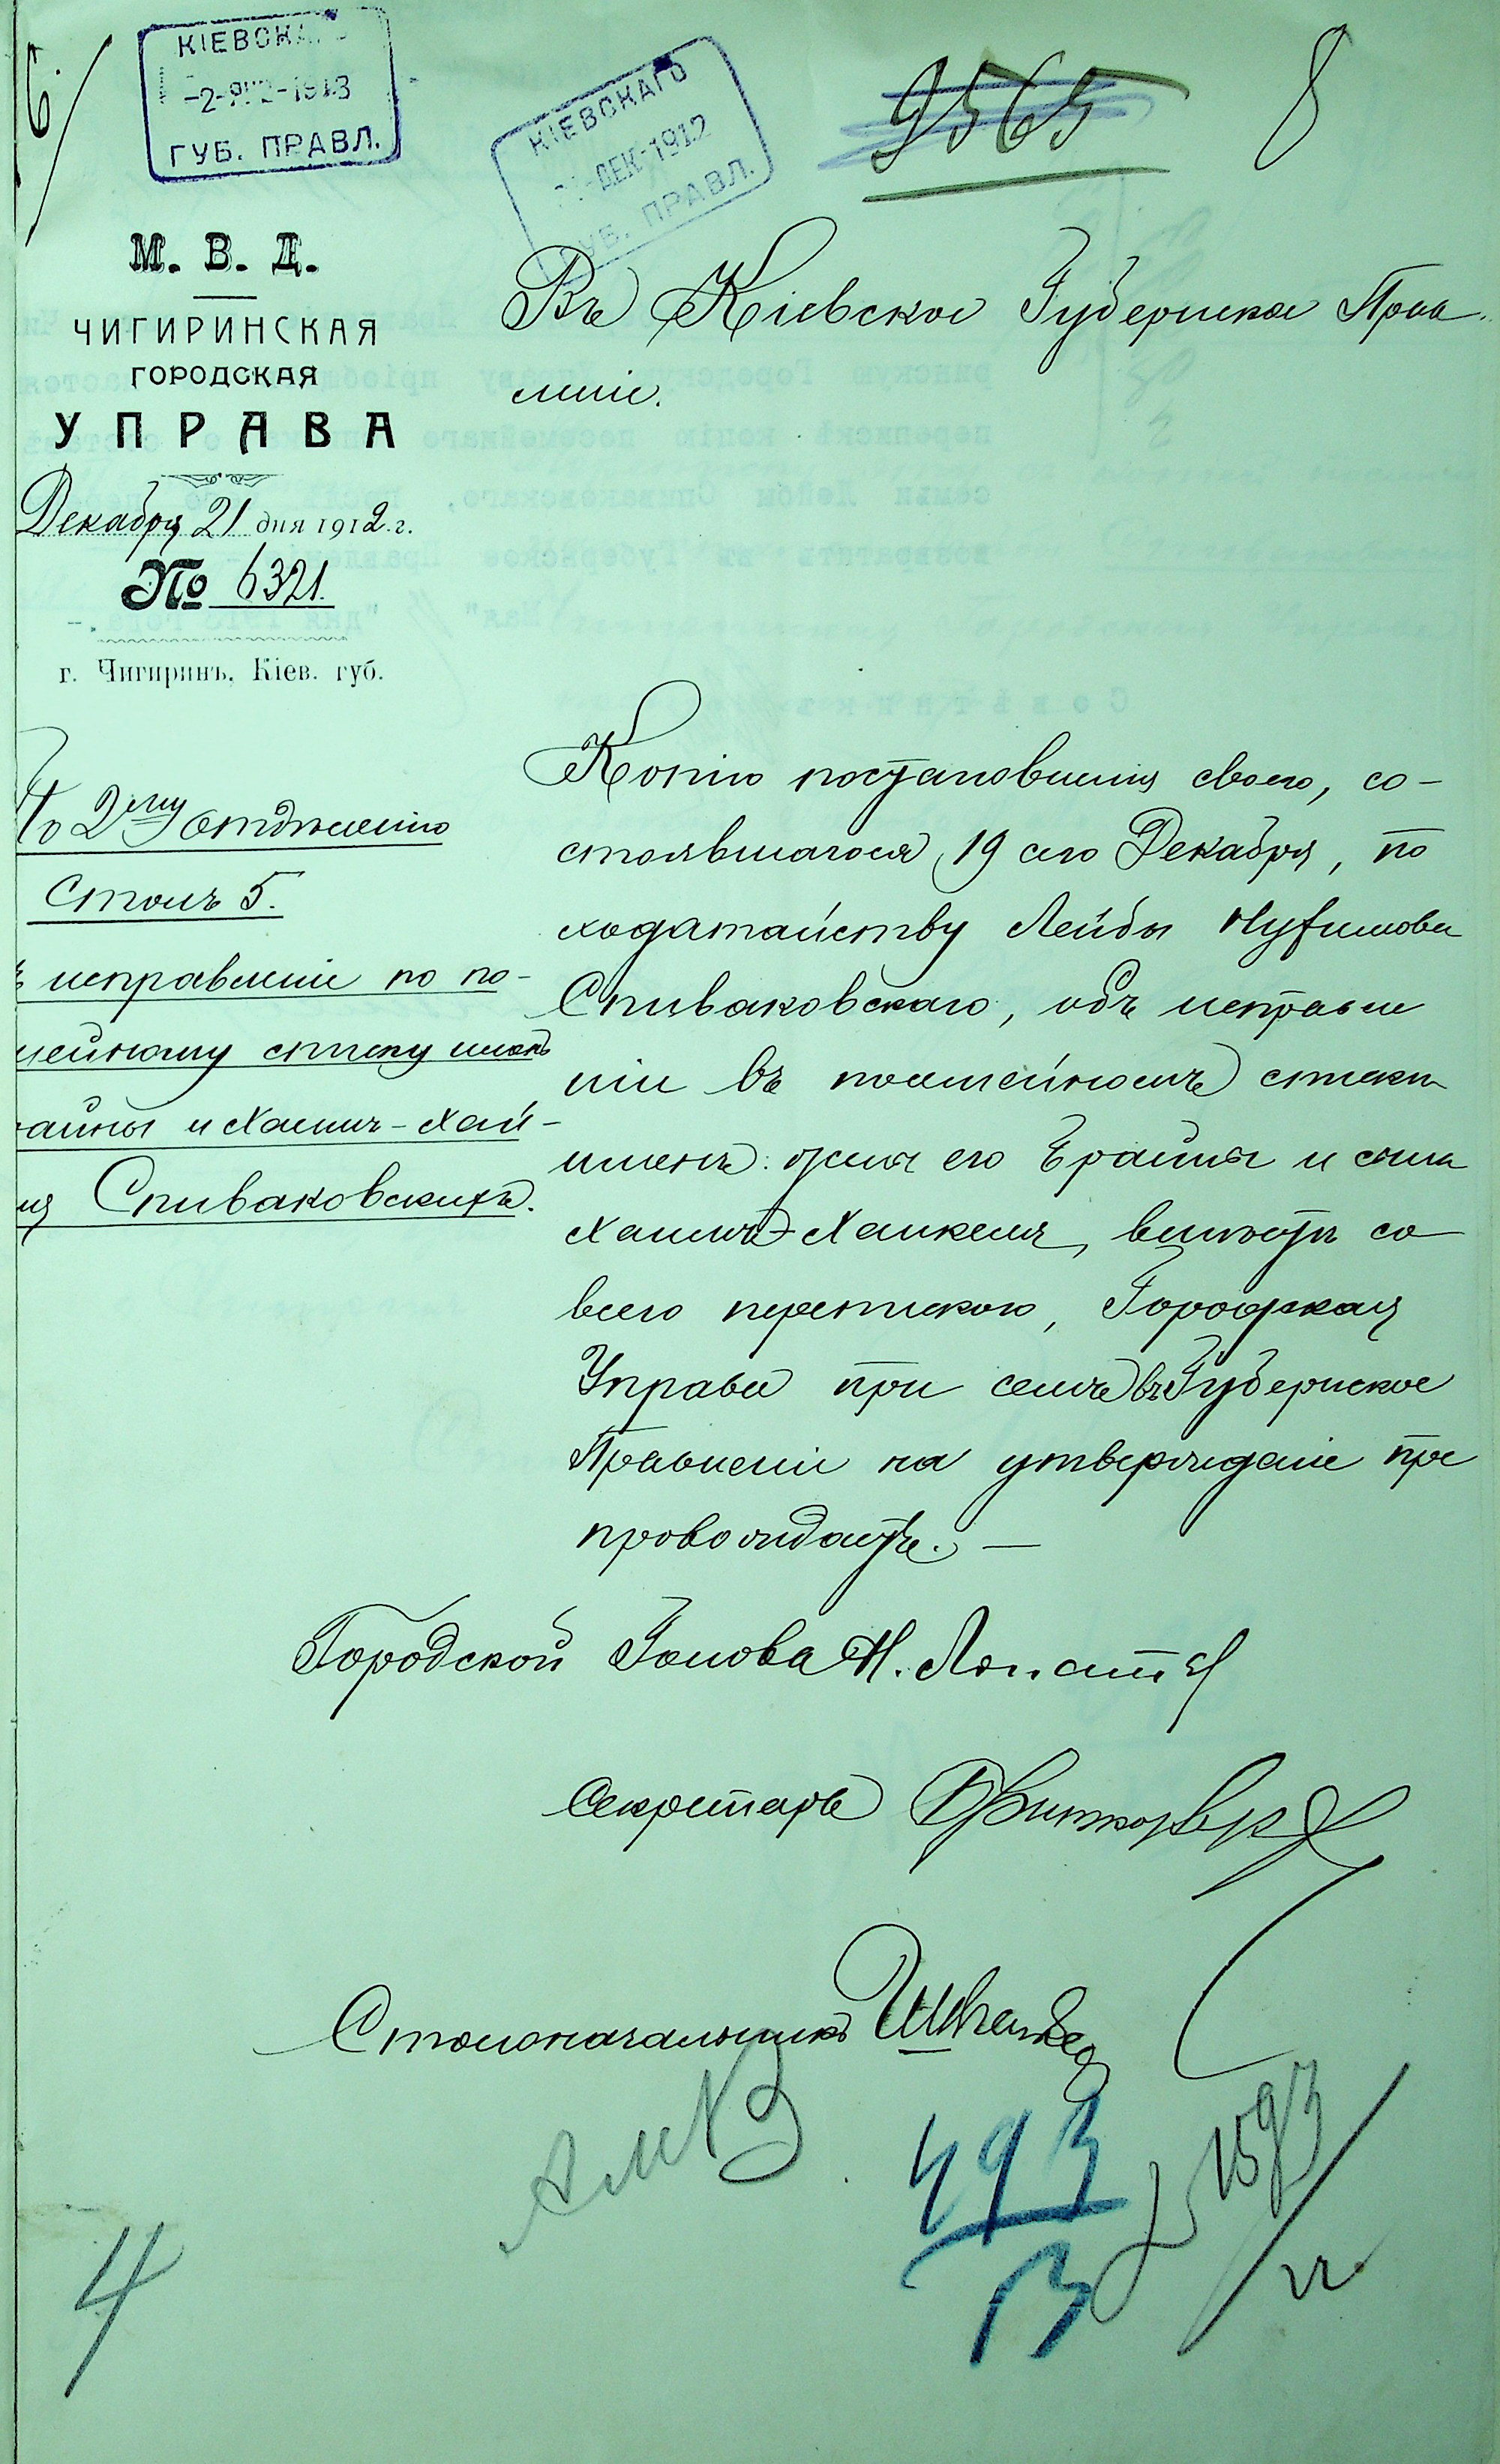 6.
КІЕВСКАГО
-2-ЯНВ-1913
ГУБ. ПРАВЛ.
КІЕВСКАГО
ДЕК-1912
ГУБ. ПРАВЛ.
9565
8
М. В. Д.
ЧИГИРИНСКАЯ
ГОРОДСКАЯ
УПРАВА
Декабря 21 дня 1912 г.
№ 6321.
г. Чигиринъ, Кіев. губ.
Въ Кіевское Губернское Прав-
леніе.
По 2ему отдѣленію
Столъ 5.
исправленіе по по-
мейному списку именъ
райны и Хаимъ-Хай-
Спиваковскихъ.
Копію постановленія своего, со-
стоявшагося 19 сего Декабря, по
ходатайству Лейбы
Спиваковскаго, объ исправле
ніи въ посемейномъ списки
именъ: жены его Брайны и сына
Хаимъ-Хаикеля, вмѣстѣ со
всею перепискою, Городская
Управа при семъ въ Губернское
Правленіе на утвержденіе пре
провождаетъ. —
Городской Голова Н. Лопата
Секретарь
Столоначальникъ
493
13
1593
4